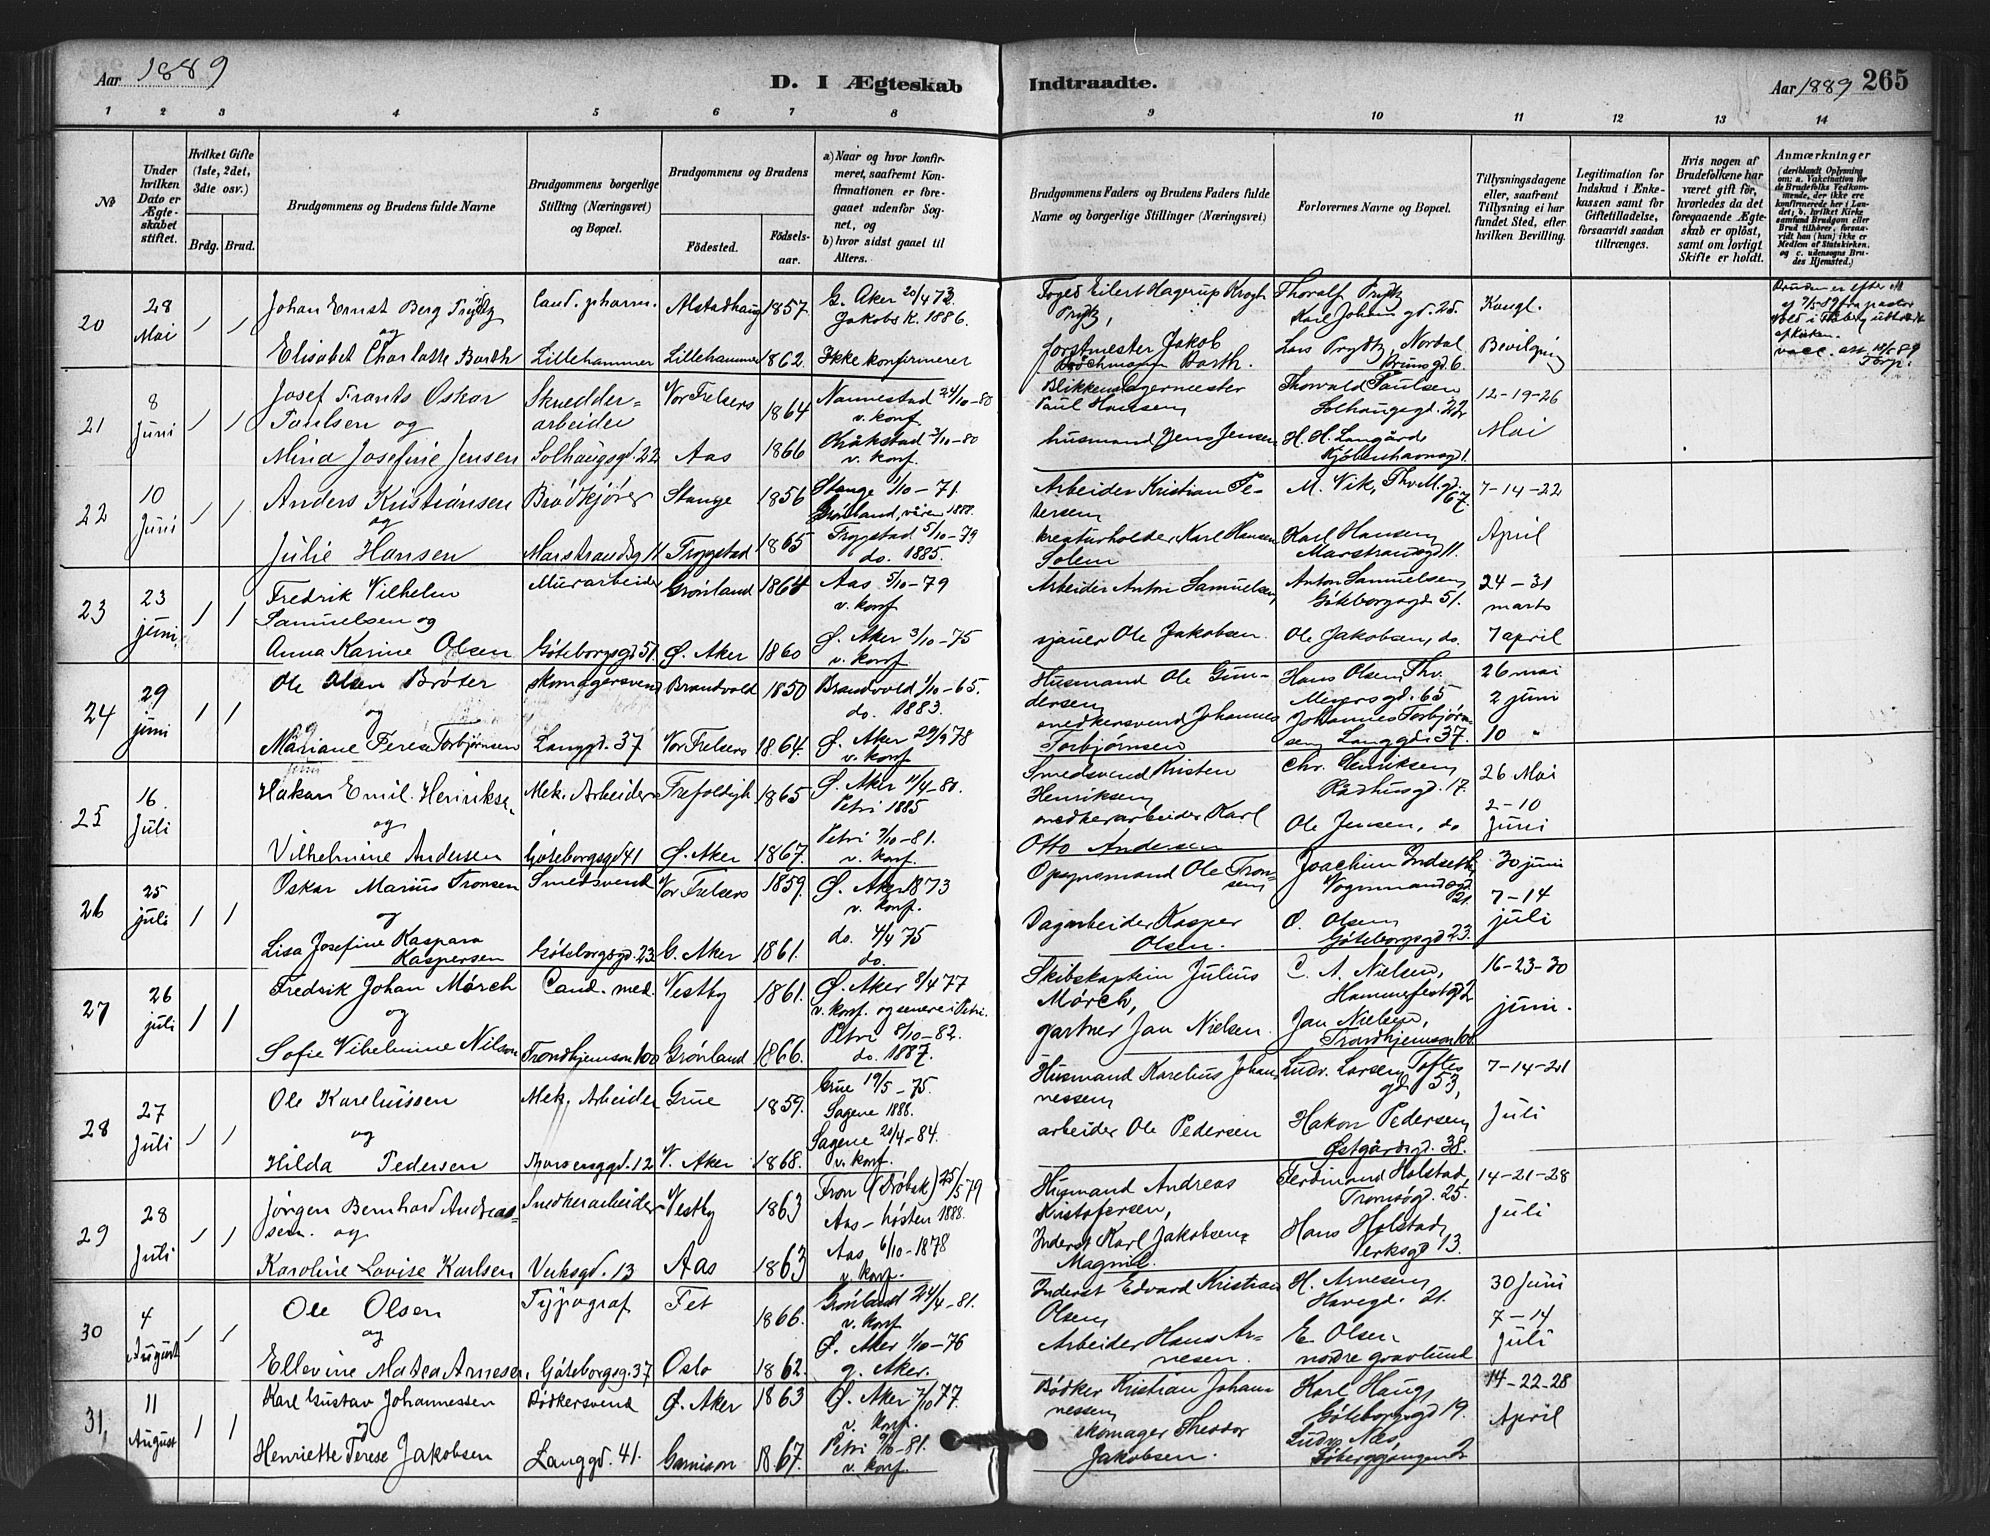 Aar 1889
D. I Ægteskab Indtraadte.
Aar 1889 265
1 2 3 4 5 6 7 8 9 10 11 12 13 14
No
Under hvilken Dato er Ægteskabet stiftet.
Hvilket Gifte (1ste, 2det, 3die osv.)
Brdg. Brud.
Brudgommens og Brudens fulde Navne
Brudgommens borgerlige Stilling (Næringsvei) og Bopæl.
Brudgommens og Brudens
Fødested.
Fødselsaar.
a) Naar og hvor konfirmeret, saafremt Konfirmationen er foregaaet udenfor Sognet, og
b) hvor sidst gaaet til Alters.
Brudgommens Faders og Brudens Faders fulde Navne og borgerlige Stillinger (Næringsvei)
Forlovernes Navne og Bopæl.
Tillysningsdagene eller, saafremt Tillysning ei har fundet Sted, efter hvilken Bevilling.
Legitimation for Indskud i Enkekassen samt for Giftetilladelse, forsaavidt saadan tiltrænges.
Hvis nogen af Brudefolkene har været gift før, hvorledes da det foregaaende Ægteskab er opløst, samt om lovligt Skifte er holdt.
Anmærkninger (deriblandt Oplysning om: a. Vaccination for de Brudefolks Vedkommende, der ikke ere konfirmerede her i Landet; b. hvilket Kirkesamfund Brudgom eller Brud tilhører, forsaavidt han (hun) ikke er Medlem af Statskirken, og c. udensogns Brudes Hjemsted.)
20 28 Mai / /
Johan Ernst Berg Trydtz og
Cand. pharm. Alstadhaug 1857. G. Aker 20/4 73. Jakobs K. 1886.
Foged Eilert Hagerup Krogh Prytz,
Thoralf Prytz Karl Johans gd. 25.
Kongl.
Elisabet Charlotte Barth Lillehammer Lillehammer 1862. Ikke konfirmeret
forstmester Jakob Barth.
Lars Prydtz, Nordal Brunsgd 6.
Bevilgning
Bruden er efter
21 8 Juni / /
Josef Frants Oskar Paulsen og
Skrædderarbeider Vor Frelsers 1864 Nannestad 24/10-80 v. konf.
Blikkenslagermester Paul Hansen
Thorvald Paulsen Solhaugsgd. 22
12-19-26 Mai
Mina Josefine Jensen Solhaugsgd. 22 Aas 1866 Kråkstad 3/10-80 v. konf.
husmand Jens Jensen
H. H. Langård Kjøbenhavnsgd 1.
22 10 Juni / /
Anders Kristiansen og
Brødkjører Stange 1856 Stange 1/10-71. Grønland, våren 1888.
Arbeider Kristian Petersen
M. Vik, Thv. M. gd. 67.
7-14-22 April
Julie Hansen Marstrandsg 11 Trygstad 1865 Trygstad 5/10-79 do. 1885.
kreaturholder Karl Hansen Solem
Karl Hansen Marstransgd 11.
23 23 juni / /
Fredrik Vilhelm Samuelsen og
Murarbeider Grønland 1864 Aas 5/10-79 v. konf
Arbeider Anton Samuelsen,
Anton Samuelsen Göteborgsgd 51.
24-31 marts
Anna Karine Olsen Göteborgsgd 51 Ø. Aker 1860 Ø. Aker 3/10-75 v. konf
sjauer Ole Jakobsen.
Ole Jakobsen, do.
7 april
24 29 juni / /
Ole Olsen Brøter og
skomagersvend Brandvold 1850 Brandvold 1/10-65. do. 1883.
Husmand Ole Gundersen
Hans Olsen, Thv. Meyersgd. 65
26 mai 2 juni
Mariane Terese Torbjørnsen Langgd. 37 Vor Frelsers 1864. Ø. Aker 29/9 78 v. konf
snedkersvend Johannes Torbjørnsen
Johannes Torbjørnsen Langgd. 37.
10 "
25 16 Juli
Hakon Emil Henriksen og
Mek. Arbeider Trefoldigh 1865 Ø. Aker 11/4-80. Petri 1885
Smedsvend Kristen Henriksen
Chr. Henriksen Rådhusgd. 17.
26 Mai 2-10 Juni
Vilhelmine Andersen Göteborgsgd 41 Ø. Aker 1867. Petri 2/10-81. v. konf.
snedkerarbeider Karl Otto Andersen
Ole Jensen, do
26 25 juli / /
Oskar Marius Tronsen og
Smedsvend Vor Frelsers 1859. Ø. Aker 1873 v. konf.
Opsynsmand Ole Tronsen
Joachim Indseth, Vognmandsgd. 21.
30 juni 7-14 juli
Lisa Josefine Kaspara Kaspersen Göteborgsgd. 23 G. Aker 1861. do. 4/4 75 do.
Dagarbeider Kasper Olsen.
O. Olsen Göteborgsgd 23.
27 26 juli / /
Fredrik Johan Mørch og
Cand. med. Vestby 1861. Ø. Aker 8/4 77 v. konf. og senere i Petri.
Skibskaptein Julius Mørch,
C. A. Nielsen, Hammerfestgd 2
16-23-30 juni.
Sofie Vilhelmine Nilsen Trondhjemsen 100 Grønland 1866. Petri 8/10-82. do. 1887.
gartner Jan Nielsen.
Jan Nielsen, Trondhjemsen 100
28 27 Juli / /
Ole Kareluissen og
Mek. Arbeider Grue 1859. Grue 19/5-75. Sagene 1888.
Husmand Karelius Johannessen
Ludv. Larsen, Toftesgd. 53,
7-14-21 Juli
Hilda Pedersen Thorvensggd. 12 V. Aker 1868. Sagene 20/4-84. v. konf.
arbeider Ole Pedersen
Hakon Pedersen, Østgårdsgd. 38.
29 28 Juli / /
Jørgen Bernhard Andreassen og
Snedkerarbeider Vestby 1863 Fron (Drøbak) 25/5 79 Aas - høsten 1888.
Husmand Andreas Kristofersen,
Ferdinand Holstad, Tromsøgd. 25.
14-21-28 Juli
Karoline Lovise Karlsen Verksgd. 13 Aas 1863 Aas 6/10-1878 v. konf.
Inderst Karl Jakobsen Magnil.
Hans Holstad, Verksgd 13.
30 4 August / /
Ole Olsen og
Typograf Fet 1866. Grønland 24/4-81. v. konf
Inderst Edvard Kristian Olsen
H. Arnesen, Havegd. 21.
30 Juni 7-14 Juli
Ellevine Matea Arnesen, Göteborgsg. 37 Oslo 1862. Ø. Aker 1/10-76 g. Aker.
Arbeider Hans Arnesen.
E. Olsen nordre gravlund
31, 11 August / /
Karl Gustav Johannessen og
Bødkersvend Ø. Aker 1863 Ø. Aker 7/10 77. v. konf.
Bødker Kristian Johannessen
Karl Haug, Göteborgsgd 19.
14-22-28 April
Henriette Terese Jakobsen Langgd. 41. Garnison 1867. Petri 9/10-81. v. konf.
skomager Theodor Jakobsen.
Ludv. Næs,